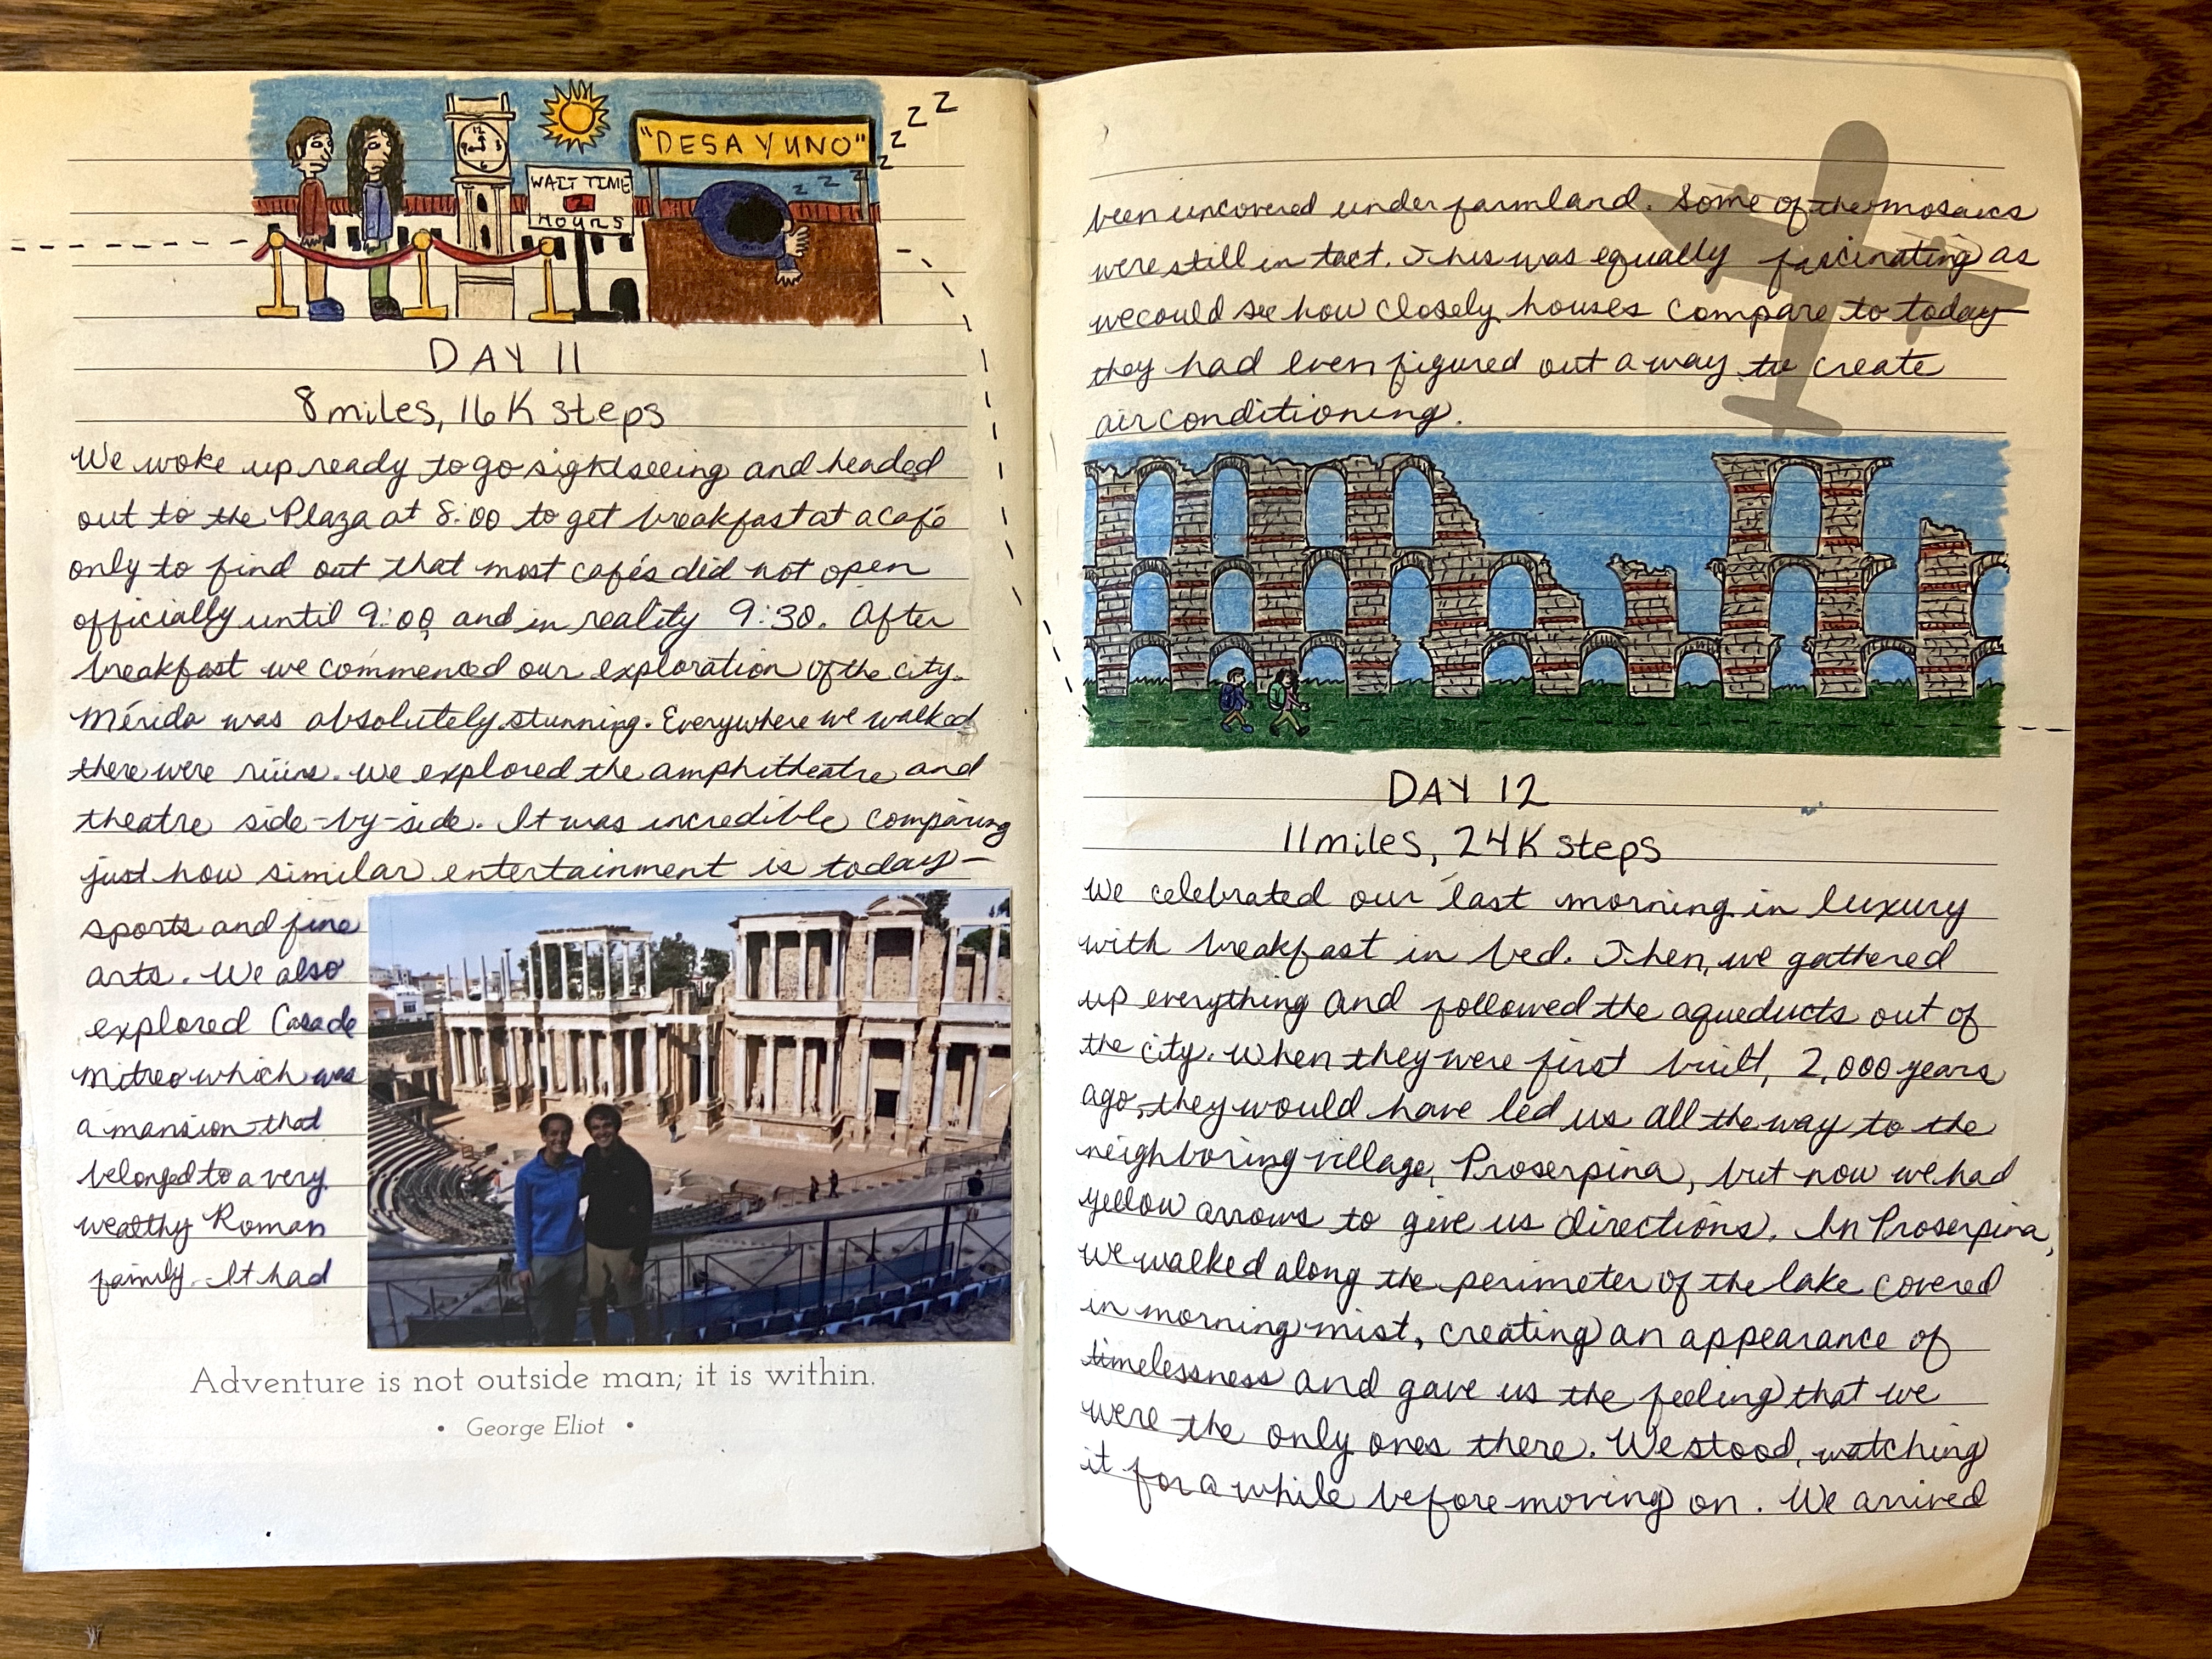 "DESAYUNO"
z z z z z z z z
WAIT TIME
2
HOURS
12
9 3
6
DAY 11
8 miles, 16K steps
We woke up ready to go sightseeing and headed
out to the Plaza at 8:00 to get breakfast at a café
only to find out that most cafés did not open
officially until 9:00 and in reality 9:30. After
breakfast we commenced our exploration of the city.
Mérida was absolutely stunning. Everywhere we walked
there were ruins. We explored the amphitheatre and
theatre side-by-side. It was incredible comparing
just how similar entertainment is today-
sports and fine
arts. We also
explored Casa de
Mitreo which was
a mansion that
belonged to a very
wealthy Roman
family. It had
Adventure is not outside man; it is within.
• George Eliot •
been uncovered under farmland. Some of the mosaics
were still in tact. This was equally fascinating as
we could see how closely houses compare to today-
they had even figured out a way to create
air conditioning.
DAY 12
11 miles, 24K steps
We celebrated our last morning in luxury
with breakfast in bed. Then, we gathered
up everything and followed the aqueducts out of
the city. When they were first built, 2,000 years
ago, they would have led us all the way to the
neighboring village, Proserpina, but now we had
yellow arrows to give us directions. In Proserpina,
we walked along the perimeter of the lake covered
in morning mist, creating an appearance of
timelessness and gave us the feeling that we
were the only ones there. We stood, watching
it for a while before moving on. We arrived